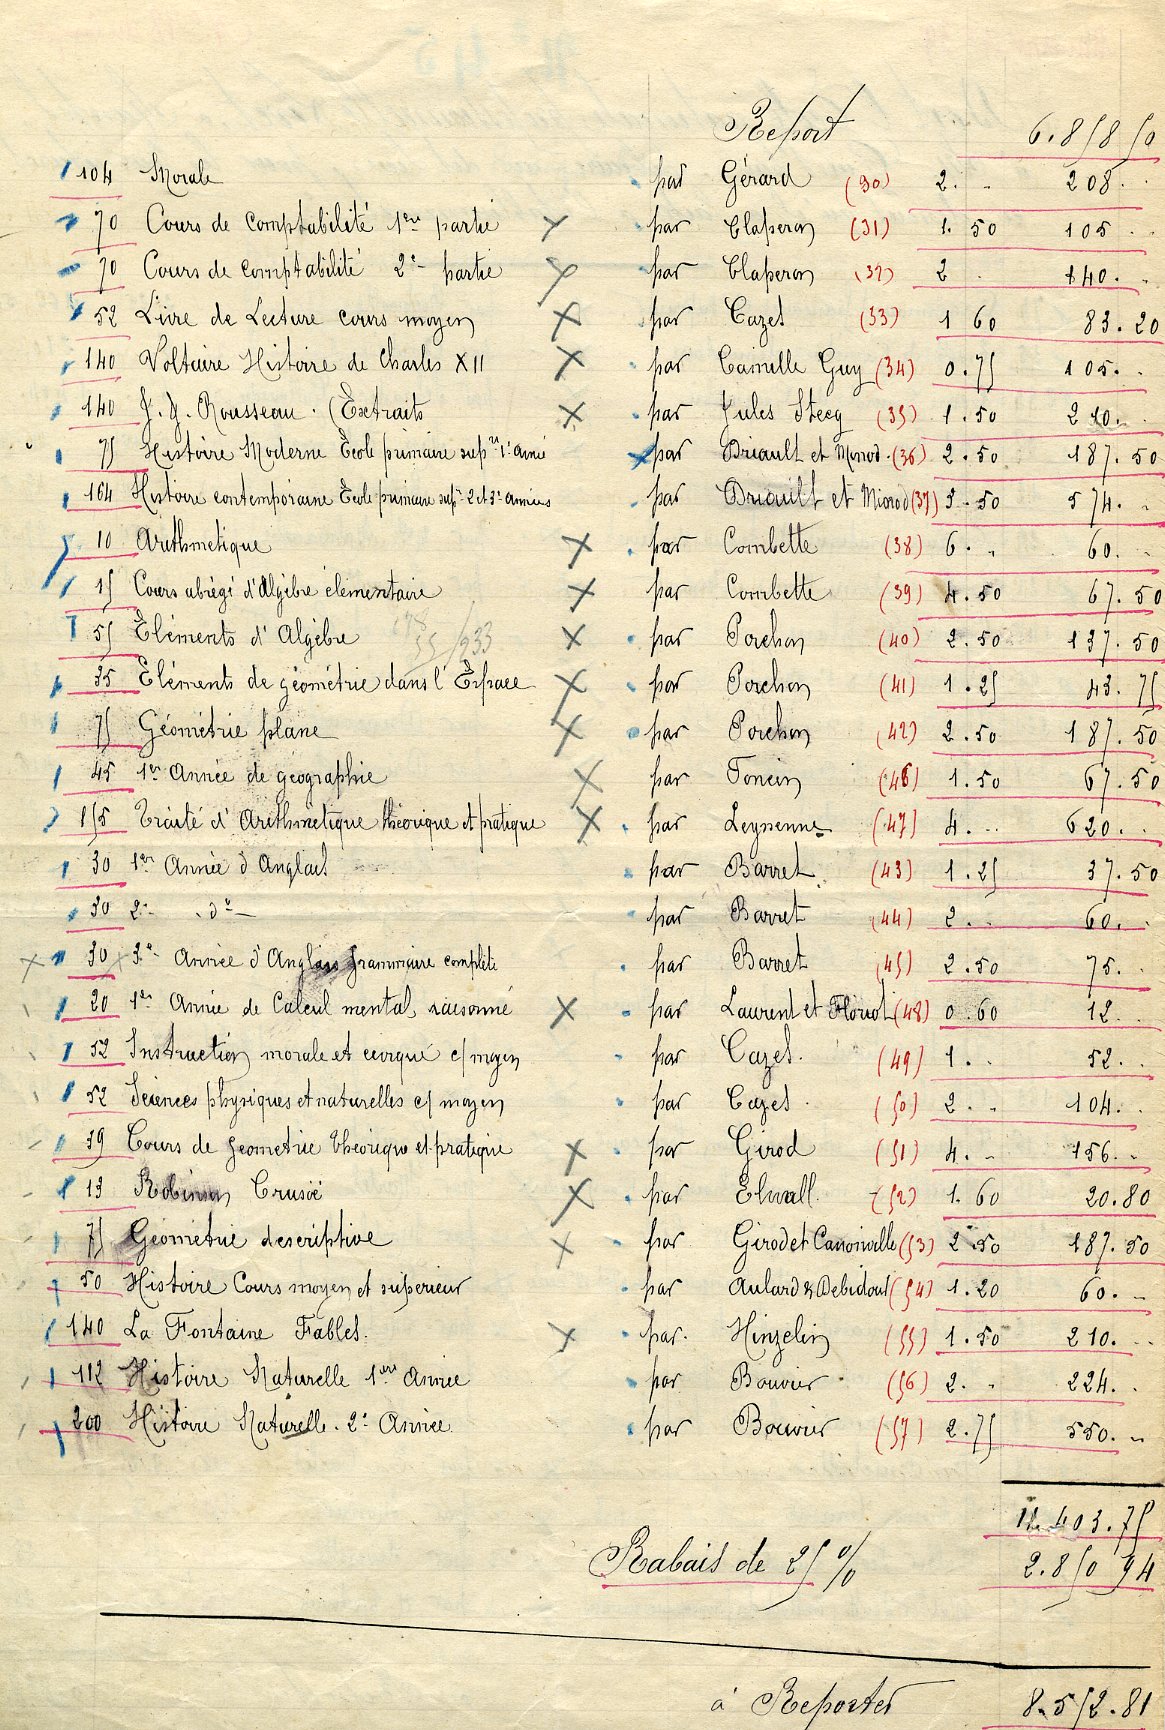 Report 6.858 50
104 Morale par Gérard (30) 2. - 208. -
70 Cours de comptabilité 1ère partie par Claperon (31) 1. 50 105 - -
70 Cours de comptabilité 2e partie par Claperon (32) 2 - 140. -
52 Livre de Lecture cours moyen par Cazes (33) 1 60 83. 20
140 Voltaire Histoire de Charles XII par Camille Guy (34) 0.75 105. -
140 J. J. Rousseau. (Extraits par Jules Steeg (35) 1.50 210. -
75 Histoire Moderne Ecole primaire supre 1e année par Driault et Monod (36) 2.50 187.50
164 Histoire contemporaine Ecole primaire supre 2 et 3e années par Driault et Monod (37) 3.50 574. -
10 Arithmétique par Combette (38) 6. - 60. -
15 Cours abrégé d'Algèbre élémentaire par Combette (39) 4.50 67.50
55 Eléments d'Algèbre par Porchon (40) 2.50 137.50
35 Eléments de géométrie dans l'Espace par Porchon (41) 1.25 43.75
75 Géométrie plane par Porchon (42) 2.50 187.50
45 1re Année de géographie par Foncin (46) 1.50 67.50
155 Traité d'Arithmétique théorique et pratique par Leyssenne (47) 4. - 620. -
30 1re Année d'Anglais par Barret (43) 1.25 37.50
30 2e - do - par Barret (44) 2. - 60. -
30 3e Année d'Anglais grammaire complète par Barret (45) 2.50 75. -
20 1re Année de Calcul mental raisonné par Laurent et Floriot (48) 0.60 12. -
52 Instruction morale et civique c/ moyen par Cazes. (49) 1. - 52. -
52 Sciences physiques et naturelles c/ moyen par Cazes. (50) 2. - 104. -
39 Cours de géométrie théorique et pratique par Girod (51) 4. - 156. -
13 Robinson Crusoë par Elwall. (52) 1.60 20.80
75 Géométrie descriptive par Girod et (53) 2.50 187.50
50 Histoire Cours moyen et supérieur par Aulard & Debidour (54) 1.20 60. -
140 La Fontaine Fables. par. Hinzelin (55) 1.50 210. -
112 Histoire Naturelle 1ère Année par Bouvier (56) 2. - 224. -
200 Histoire Naturelle. 2e Année par Bouvier (57) 2.75 550. -
11.403.75
Rabais de 25 % 2.850 94
à Reporter 8.552.81